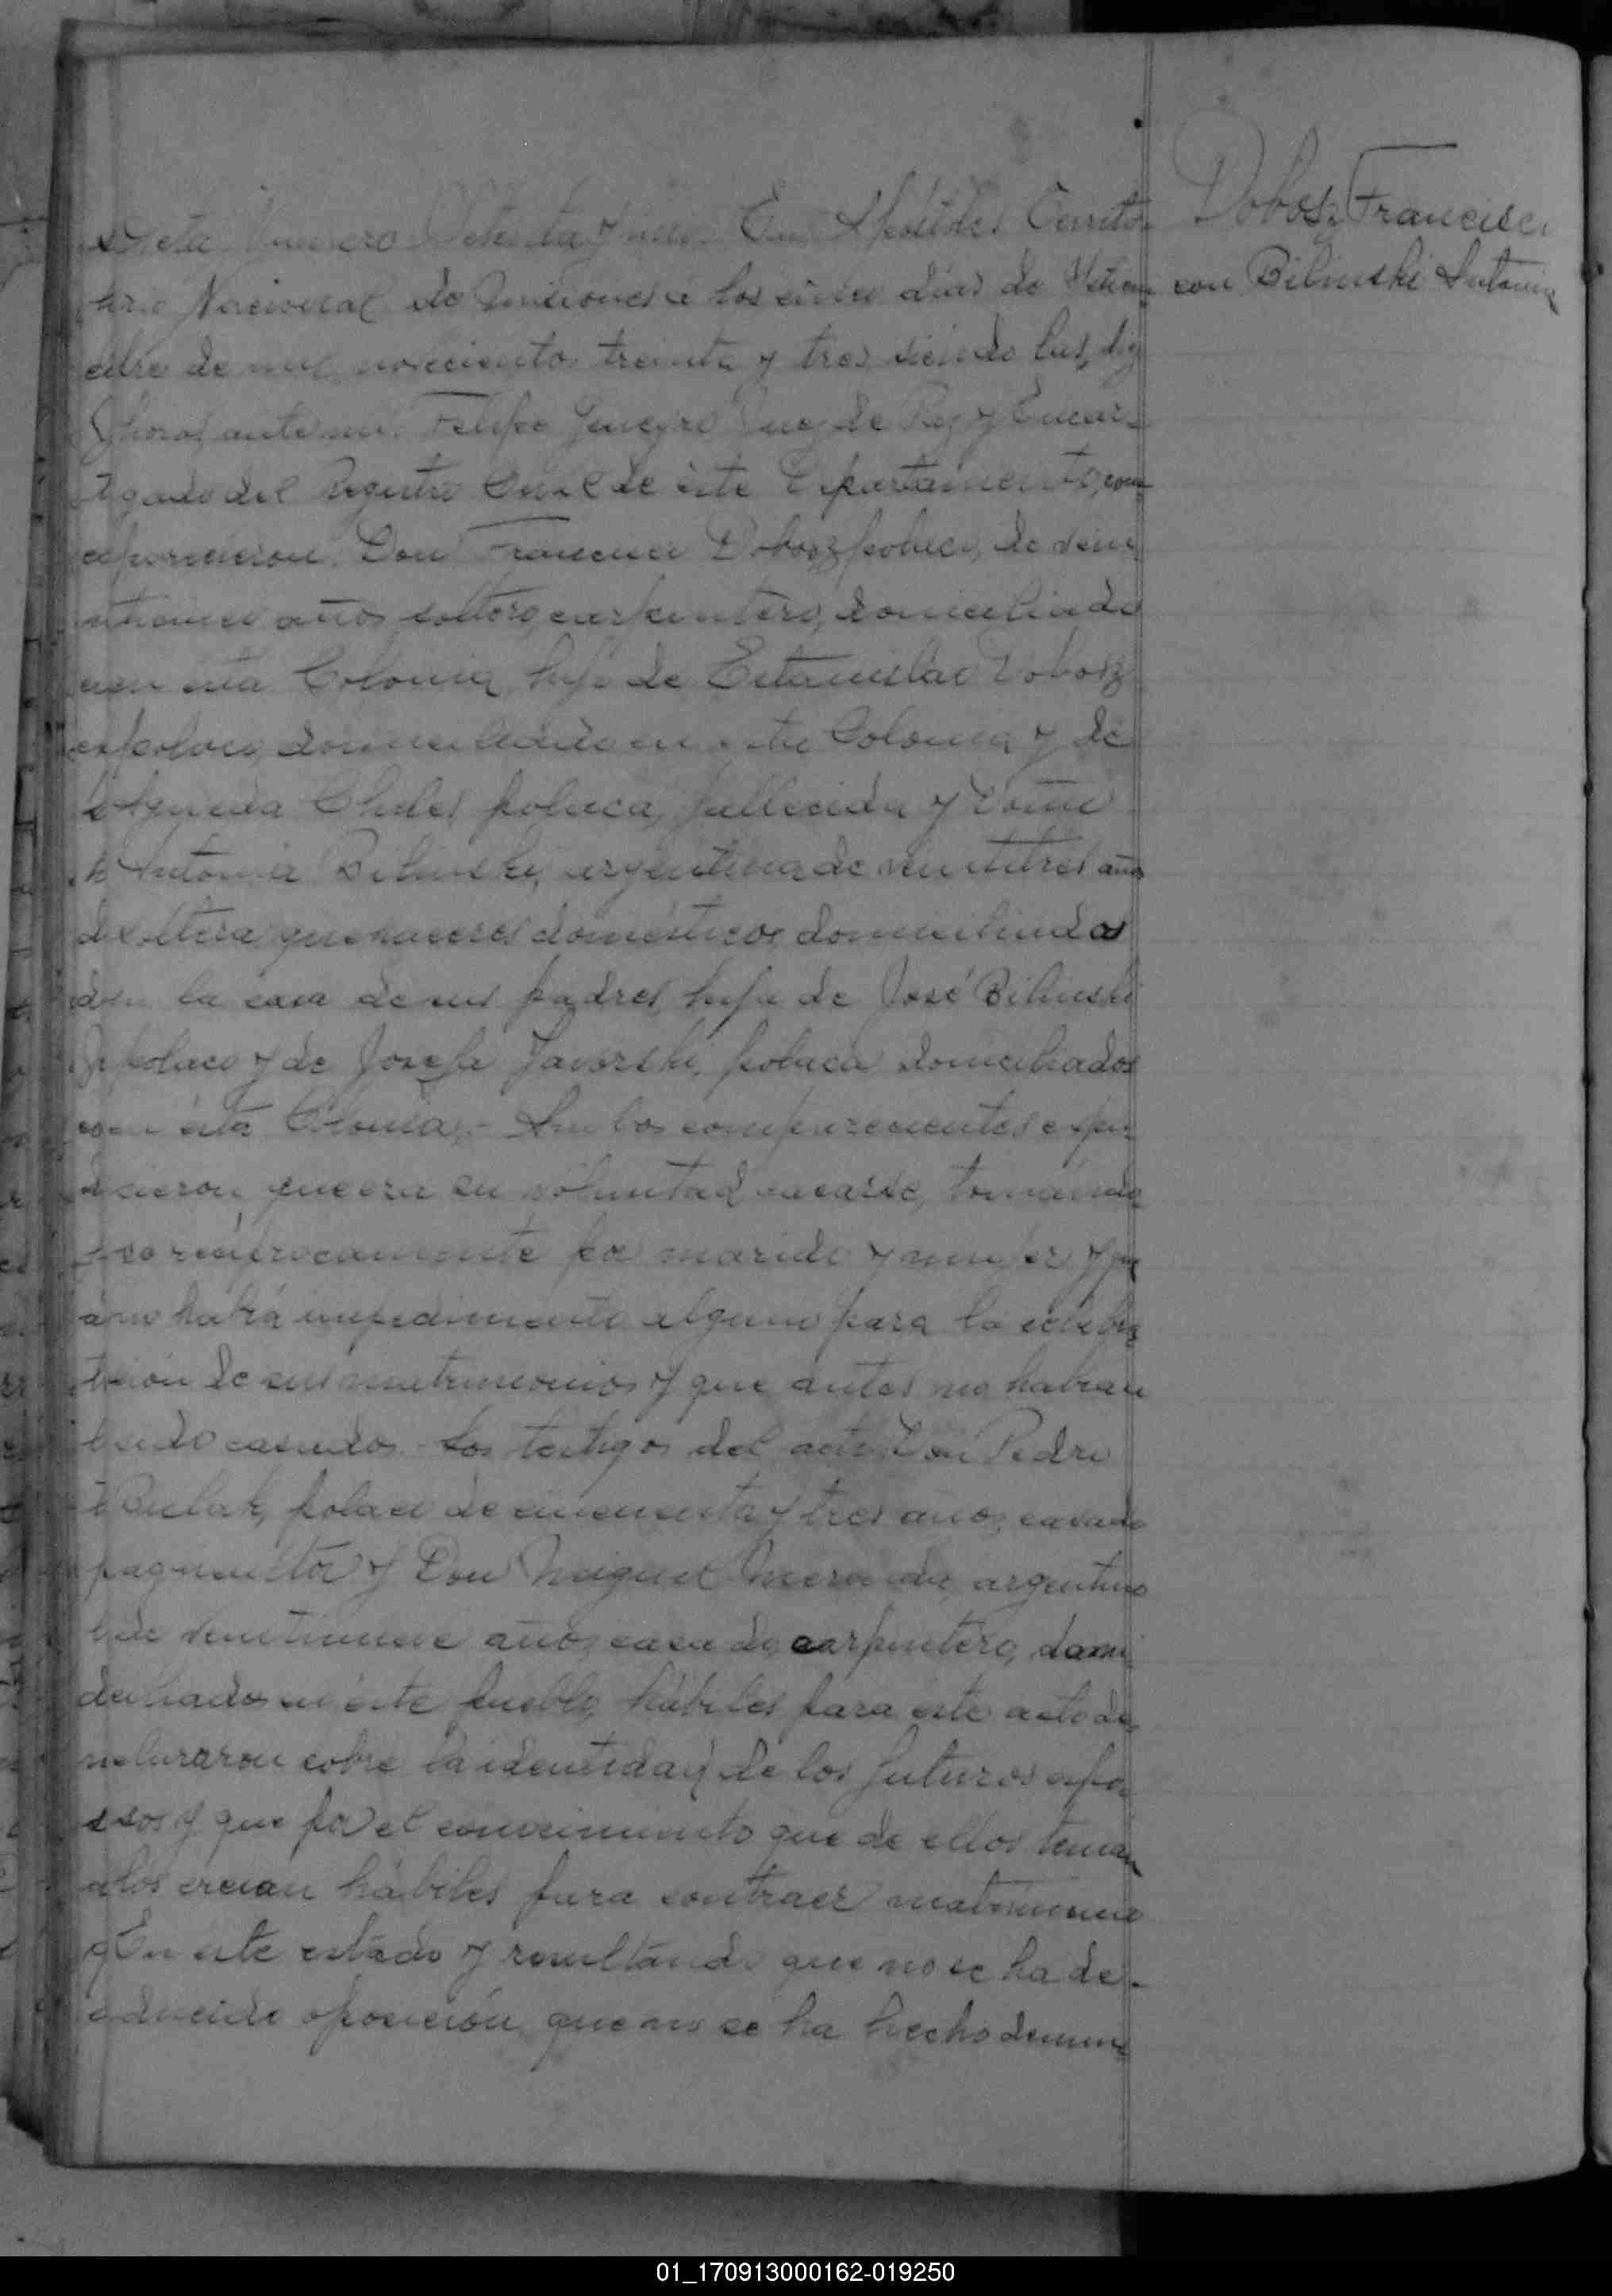 Dobosz Francisco
con Bilinski Antonia
Acta Número Setenta y En Apóstoles Territo
rio Nacional de Misiones á los cinco días de Setiem
bre de mil novecientos treinta y tres, siendo las diez
horas, ante mi Felipe Juez de Paz y Encar-
gado del Registro Civil de éste Departamento, com
parecieron Don Francisco Dobosz polaco, de vein
años soltero, carpintero, domiciliado
en ésta Colonia, hijo de Estanislao Dobosz
polaco, domiciliado en esta Colonia y de
polaca, fallecida y Doña
Antonia Bilinski, argentina de veintitres años
soltera quehaceres domésticos, domiciliada
en la casa de sus padres, hija de José Bilinski
polaco y de Josefa Javorski, polaca domiciliados
en ésta Colonia.- Ambos comparecientes expu
sieron que era su voluntad casarse, tomando
se recíprocamente por marido y mujer y que
no había impedimento alguno para la celebra
ción de sus matrimonios y que antes no habían
sido casados. Los testigos del acto Don Pedro
polaco de cincuenta y tres años, casado
y Don Miguel argentino
de veintinueve años, casado, carpintero, domi
ciliados en éste pueblo, hábiles para éste acto de
clararon sobre la identidad de los futuros espo
sos y que por el conocimiento que de ellos tenían
los creían hábiles para contraer matrimonio
En éste estado y resultando que no se ha de-
ducido oposición, que no se ha hecho denun
01_170913000162-019250